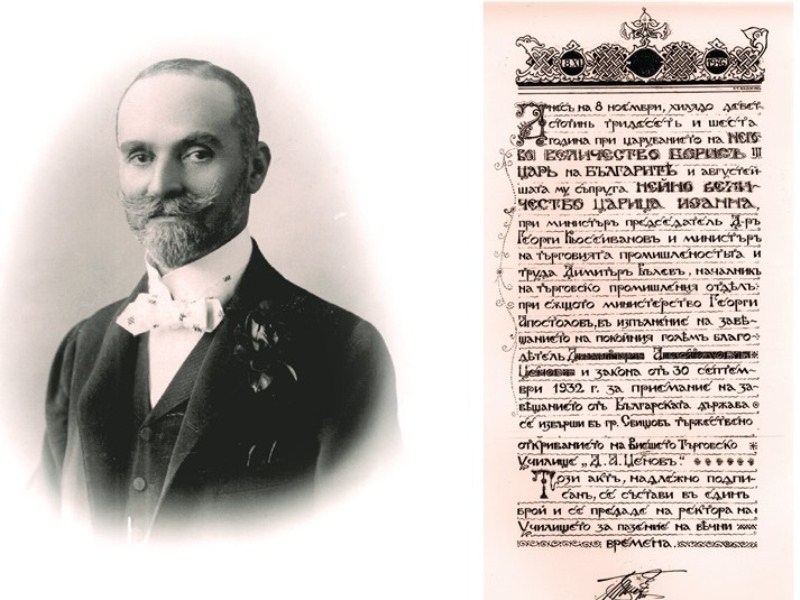 8.XI 1936
Днесъ на 8 ноември, хилядо девет-
стотинъ тридесеть и шеста
година при царуването на НЕГО-
ВО ВЕЛИЧЕСТВО БОРИСЪ III
ЦАРЬ на БЪЛГАРИТѢ и августей-
шата му съпруга НЕЙНО ВЕЛИ-
ЧЕСТВО ЦАРИЦА ИОАННА,
при министъръ председатель Д-ръ
Георги Кьосеивановъ и министъръ
на търговията промишлеността и
труда Димитъръ Вълевъ, началникъ
на търговско промишления отдѣлъ
при сѫщото министерство Георги
Апостоловъ, въ изпълнение на завѣ-
щанието на покойния голѣмъ благо-
дѣтель
Ценовъ и закона отъ 30 септем-
ври 1932 г. за приемание на за-
вѣщанието отъ Българската държава
се извърши въ гр. Свищовъ тържествено
откриването на Висшето Търговско
Училище „Д. А. Ценовъ."
Този актъ, надлежно подпи-
санъ, се състави въ единъ
брой и се предаде на ректора на
Училището за пазение на вѣчни
времена.